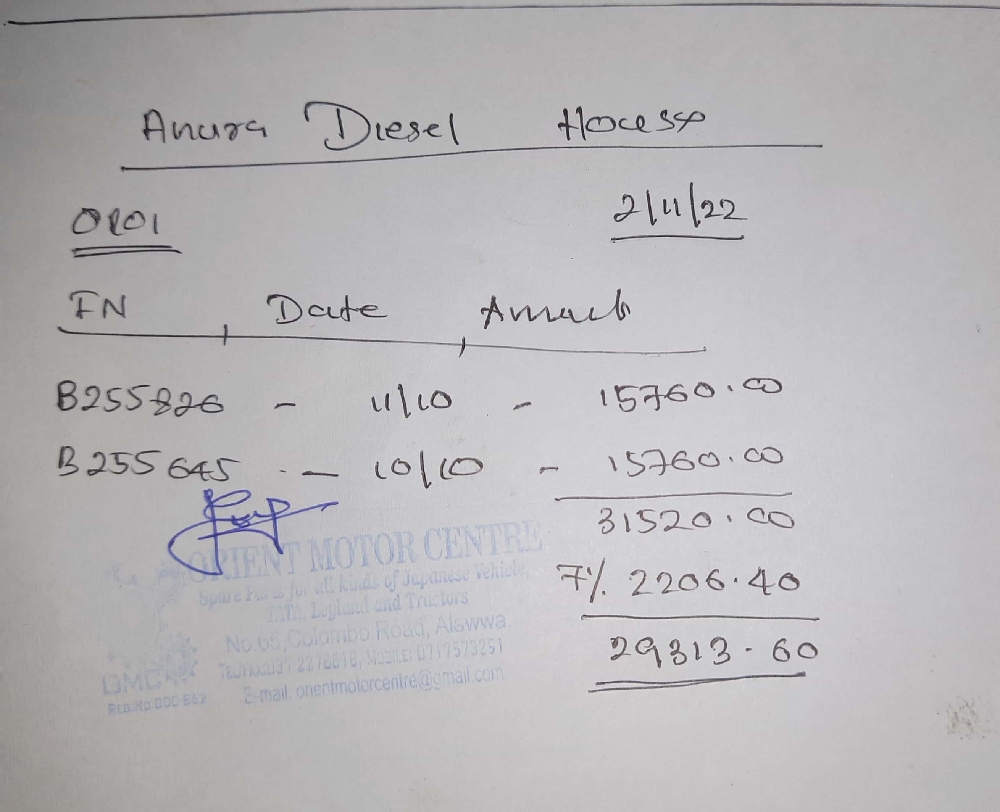 Anura Diesel House
0101
2/11/22
IN Date Amount
B255826 - 11/10 - 15760.00
B255645 - 10/10 - 15760.00
31520.00
7% 2206.40
29313.60
ORIENT MOTOR CENTRE
Spare Parts for all kinds of Japanese Vehicle,
TATA, Leyland and Tractors
No.65, Colombo Road, Alawwa.
Tel/Fax:037 2278618, Mobile: 0717573251
OMC
E-mail. orientmotorcentre@gmail.com